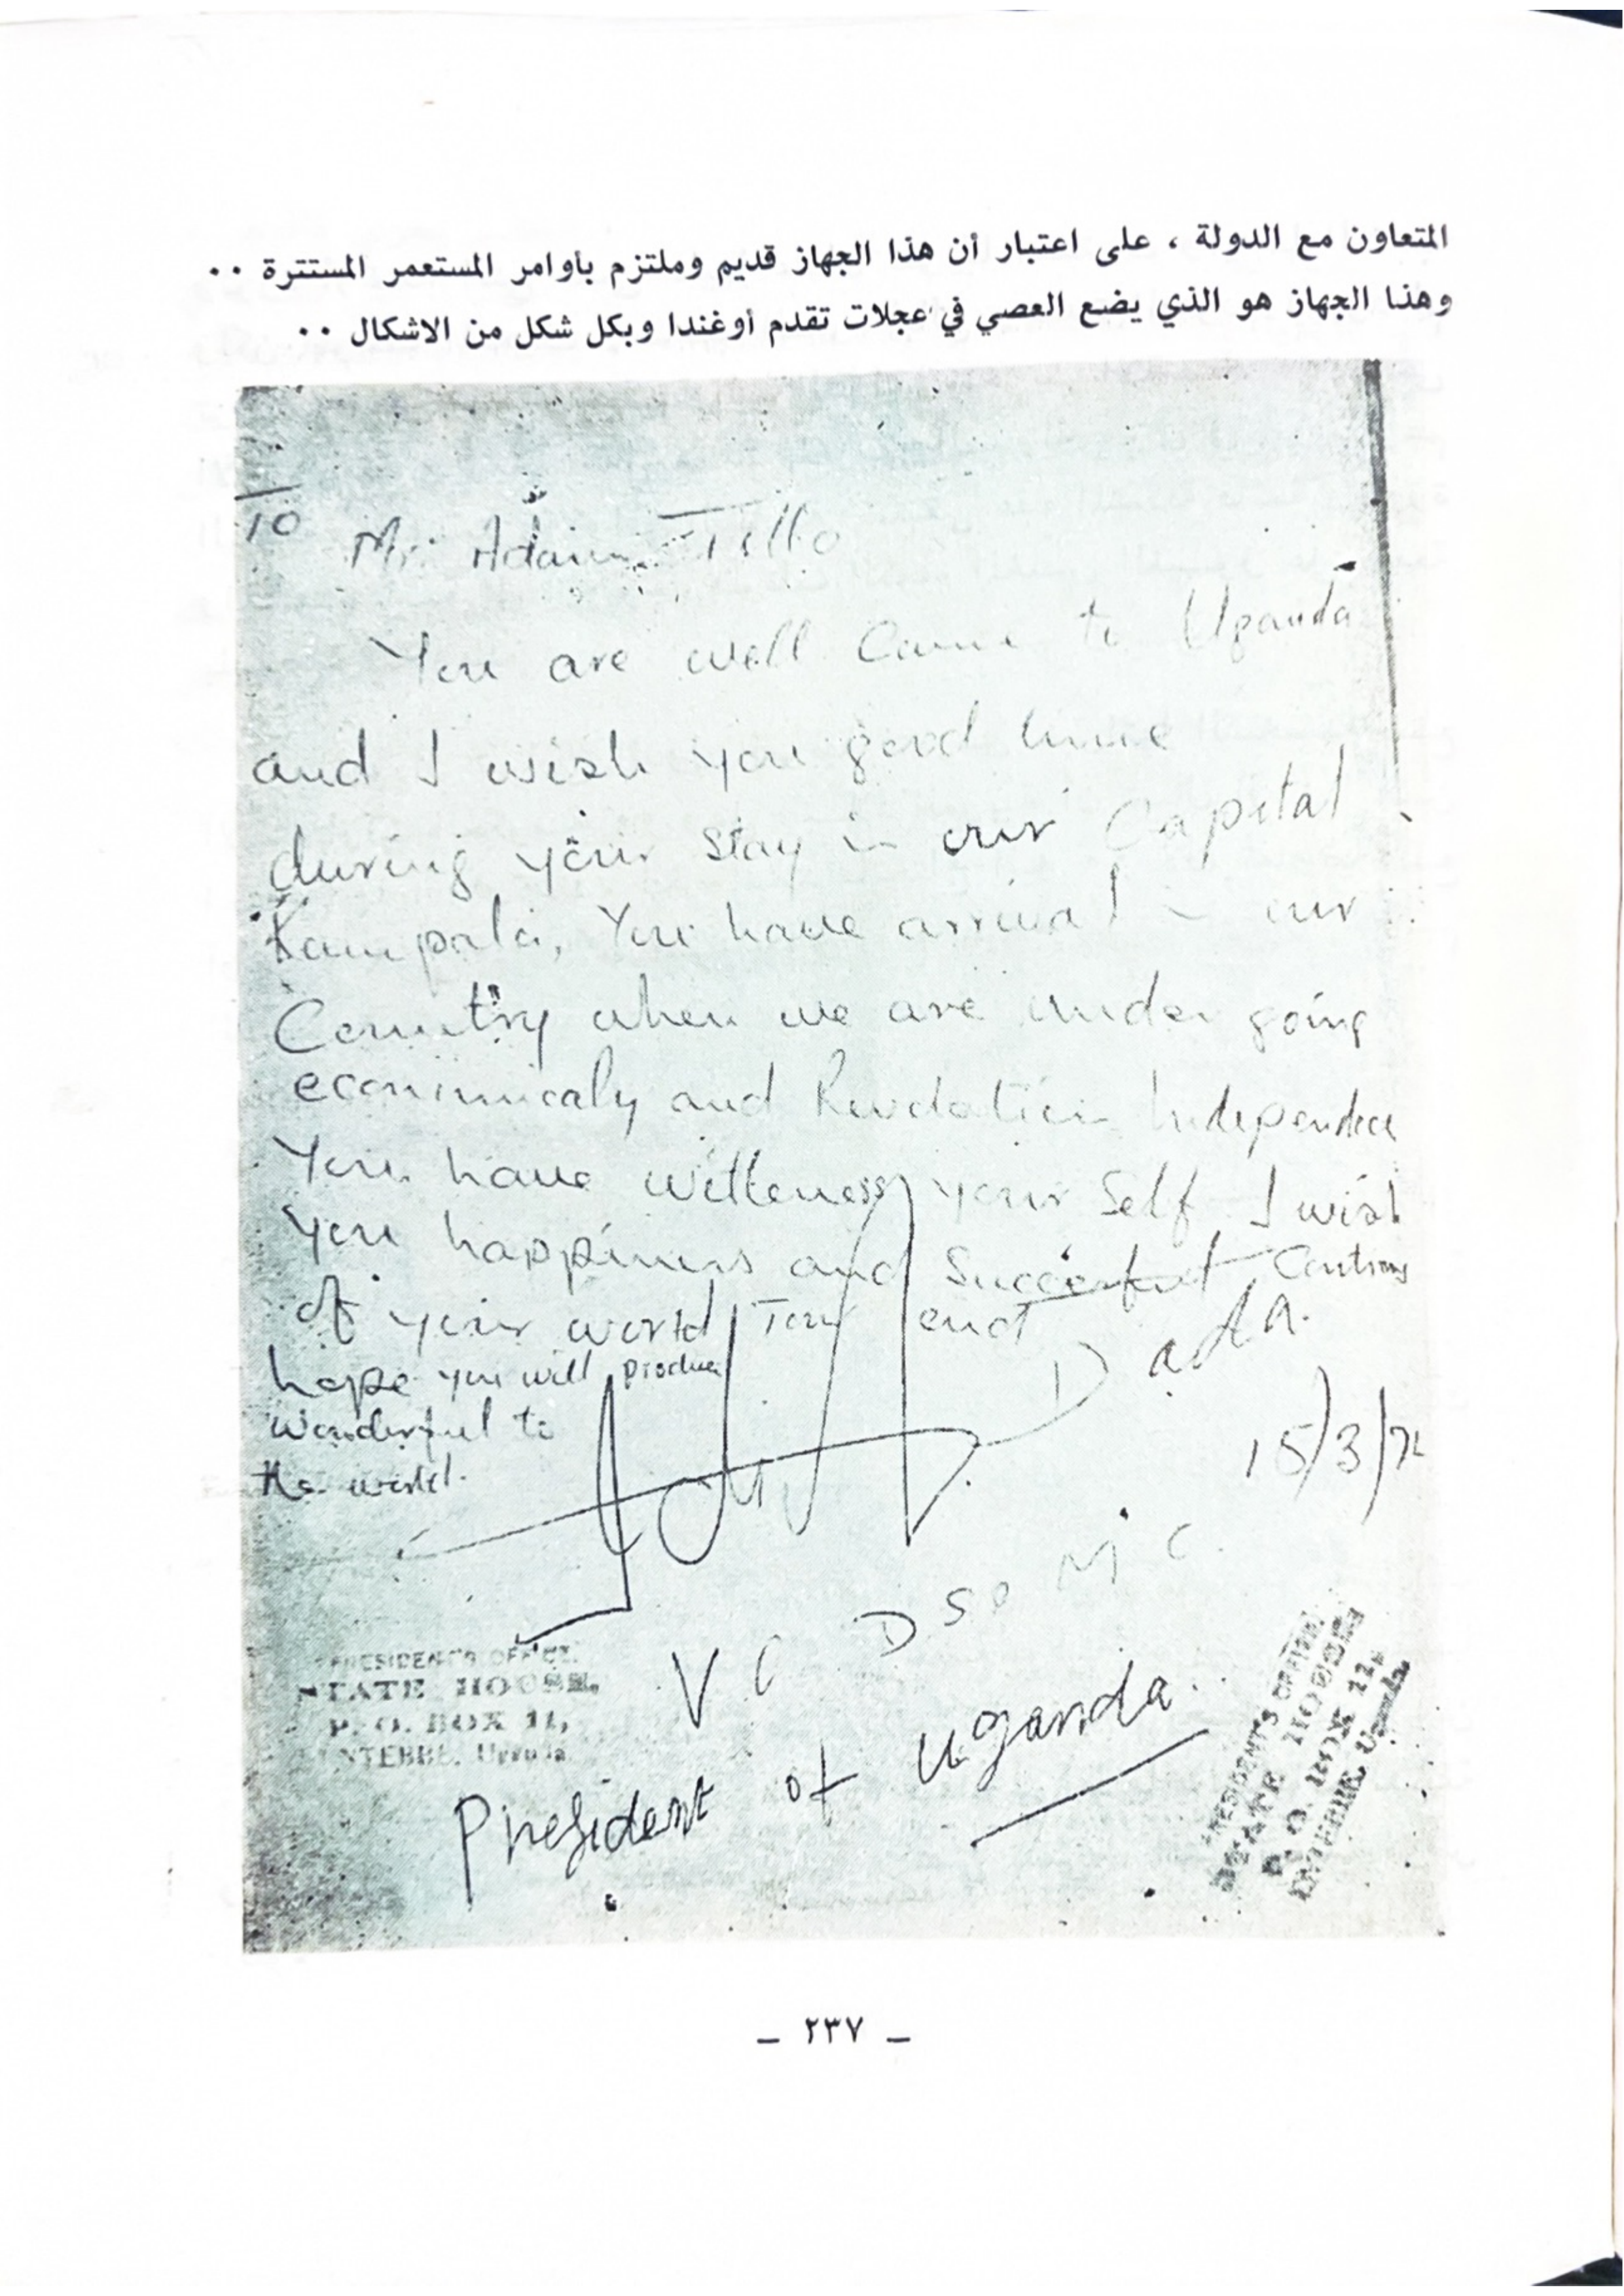 المتعاون مع الدولة ، على اعتبار أن هذا الجهاز قديم وملتزم بأوامر المستعمر المستترة ٠٠
وهذا الجهاز هو الذي يضع العصي في عجلات تقدم أوغندا وبكل شكل من الاشكال ٠٠
TO Mr. Adam
You are well Came to Uganda
and I wish you good time
during your stay in our Capital
Kampala, You have arrival in our
Country when we are under going
economicaly and Revolution Independece
You have witteness your Self I wish
you happiness and Succesful
of your world Tour and
hope you will produce
wonderful to
the world.
Dada.
15/3/
V C DSO M C.
President of Uganda.
PRESIDENT'S OFFICE,
STATE HOUSE,
P. O. BOX 11,
ENTEBBE, Uganda
PRESIDENT'S OFFICE,
STATE HOUSE
P. O. BOX 11,
ENTEBBE, Uganda
– ٢٣٧ –